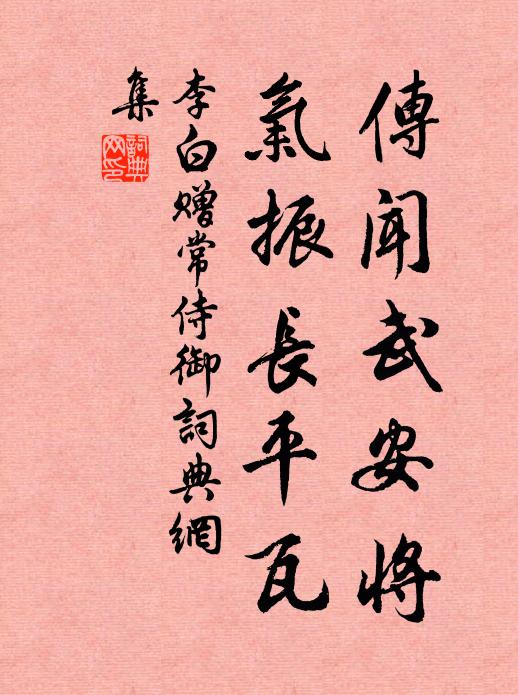 傳聞武安將
氣振長平瓦
李白贈常侍御詞典網
集
詞典網印